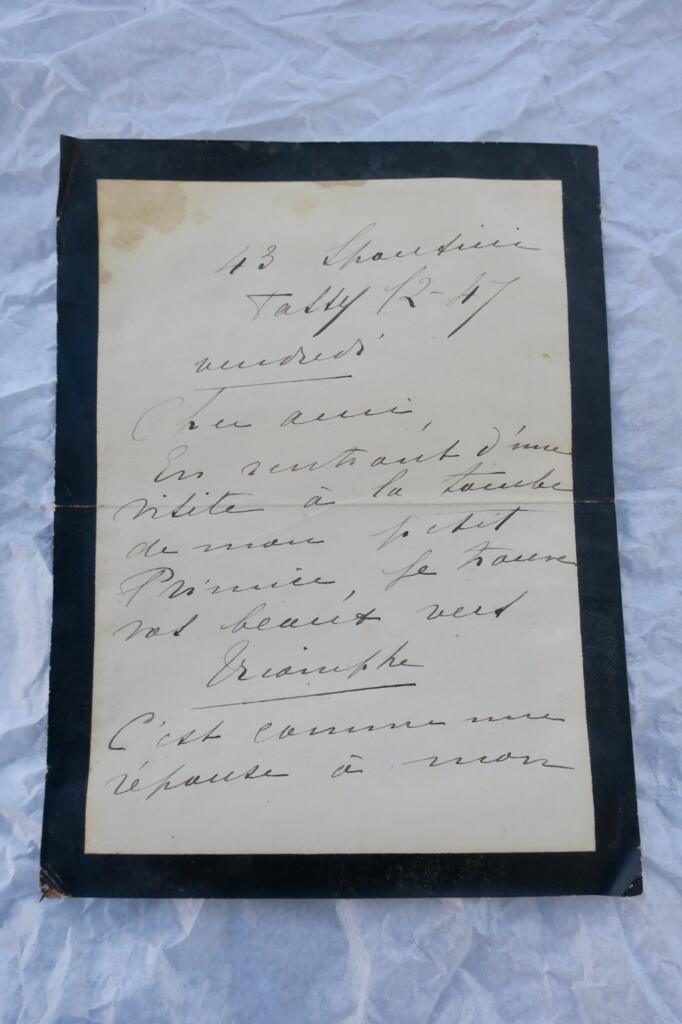 43 Spontini
Passy 12-47
vendredi
Cher ami,
En rentrant d'une
visite à la tombe
de mon petit
Primice, je trouve
vos beaux vers
Triomphe
C'est comme une
réponse à mon